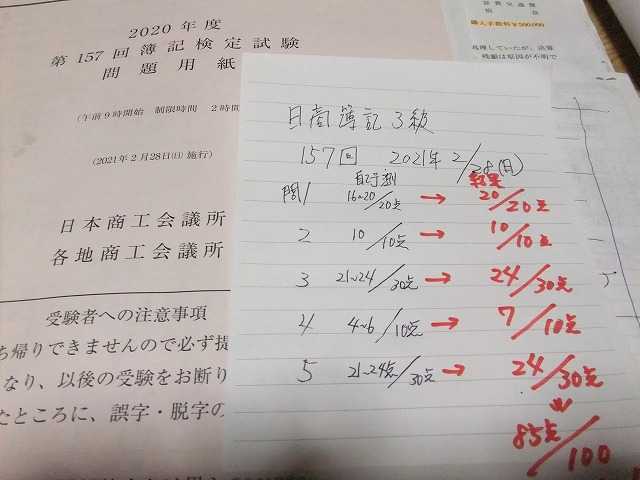 2020年度
第157回簿記検定試験
問題用紙
(午前9時開始 制限時間 2時間
(2021年2月28日(日)施行)
日本商工会議所
各地商工会議所
受験者への注意事項
ち帰りできませんので必ず提
なり、以後の受験をお断り
たところに、誤字・脱字の
購入手数料¥500,000
処理していたが、決算
残額は原因が不明で
日商簿記3級
157回 2021年2/28(日)
自己予測 結果
問1 16~20/20点 → 20/20点
2 10/10点 → 10/10点
3 21~24/30点 → 24/30点
4 4~6/10点 → 7/10点
5 21~24点/30点 → 24/30点
85点/100